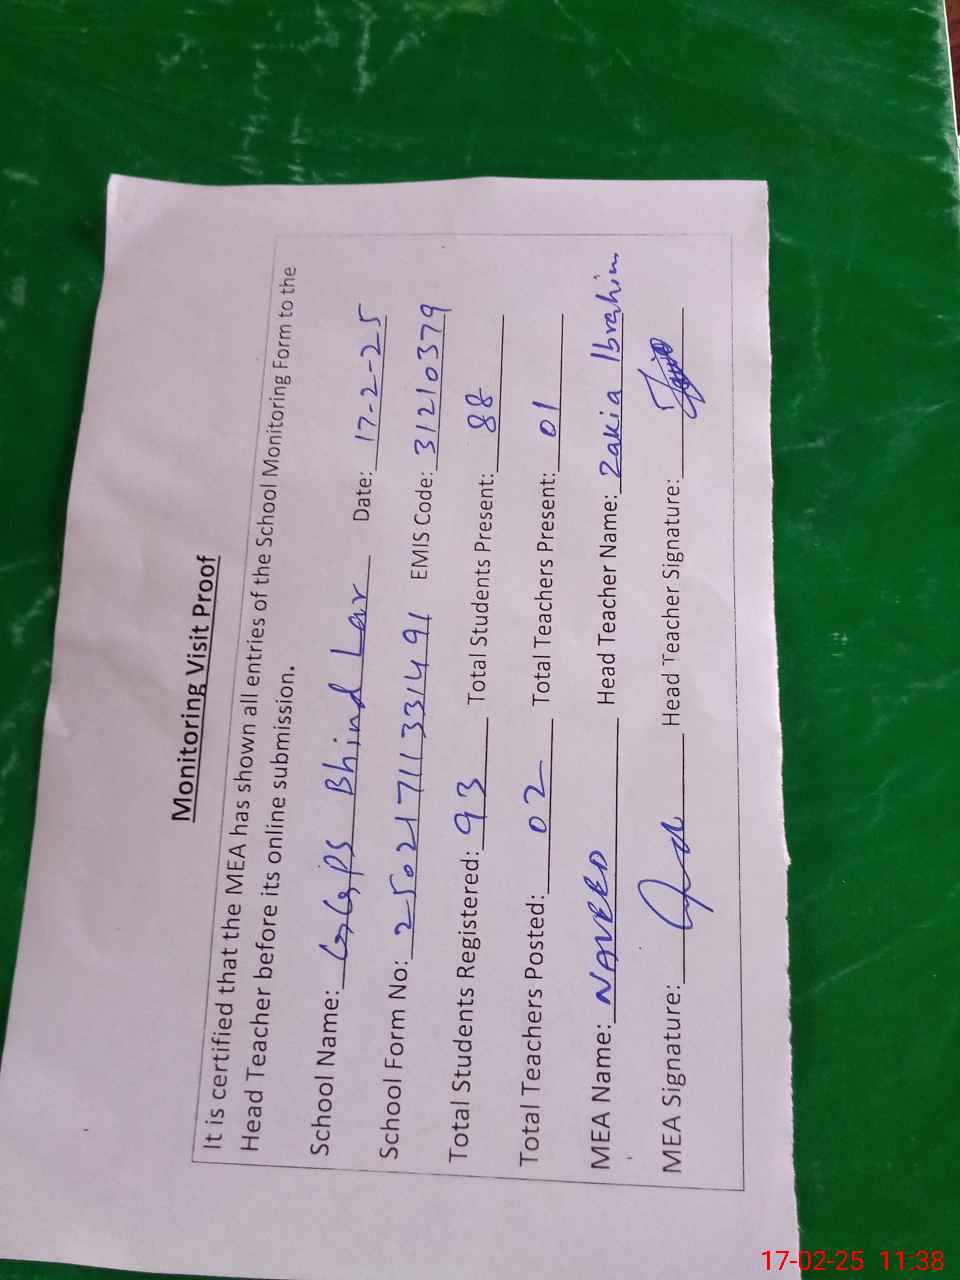 Monitoring Visit Proof
It is certified that the MEA has shown all entries of the School Monitoring Form to the
Head Teacher before its online submission.
School Name: GGPS Bhind Lar Date: 17-2-25
School Form No: 250217113331491 EMIS Code: 31210379
Total Students Registered: 93 Total Students Present: 88
Total Teachers Posted: 02 Total Teachers Present: 01
MEA Name: NAVEED Head Teacher Name: Zakia Ibrahim
MEA Signature: Head Teacher Signature:
17-02-25 11:38